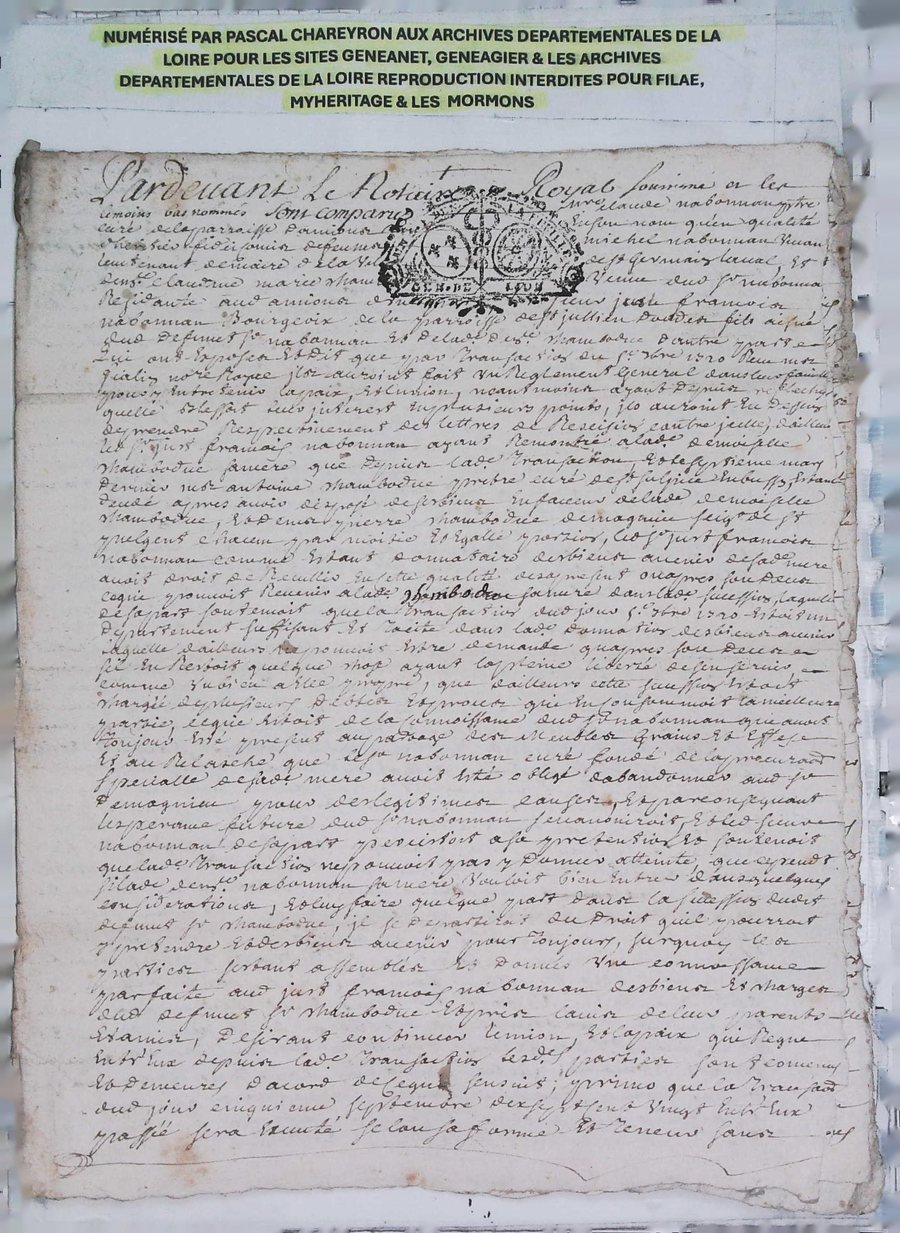 NUMÉRISÉ PAR PASCAL CHAREYRON AUX ARCHIVES DEPARTEMENTALES DE LA
LOIRE POUR LES SITES GENEANET, GENEAGIER & LES ARCHIVES
DEPARTEMENTALES DE LA LOIRE REPRODUCTION INTERDITES POUR FILAE,
MYHERITAGE & LES MORMONS
Pardevant Le Notaire Royal soussigne et les
temoins bas nommés sont comparus claude nabonnan
curé de la parroisse damions En son nom qu'en qualité
michel nabonnan vivant
lieutenant de maire de la de st Germain laval Et
GEN. DE LION
Residante aud amions just francois
nabonnan Bourgeoix de la parroisse de st jullien fils
dud deffunt sr nabonnan Et de lad chambodue dautre part
qui ont Exposer Et dit que par Transaction du 5e 7bre 1720
auroint fait Un Reglement General
pour y Entretenir la paix, Et lunion, neantmoins ayant depuis
en plusieurs points, ils auroint
de prendre Respectivement des lettres de Rescision contre jcelle, dailleurs
led sr just francois nabonnan ayant Remontré a lad demoiselle
chambodue sa mere que depuis lad Transaction Et le septieme mars
dernier mre antoine chambodue prbre curé de st sulpice
apres avoir disposé de ses biens En faveur de lad demoiselle
chambodue, Et de mre pierre chambodue demagnieu seigr de st
chacun par moitié Et Egalle portion, led sr just francois
nabonnan comme Estant donnataire des biens avenir de sad mere
avoit droit de Recuillir En cette qualité des apresent ou apres son deces
ce qui pouvoit Revenir a lad chambodue sa mere dans lad succession, laquelle
de sa part soutenoit que la Transaction dud jour 5e 7bre 1720 Estoit un
departement suffisant Et tacite dans lad donnation des biens avenir
laquelle dailleurs ne pouvoit Estre demandé qu'apres son deces
sil En Restoit quelque chose ayant la pleine liberté de sen servir
comme Un bien a Elle propre, que dailleurs cette succession Estoit
chargée de plusieurs debtes Et proces que En consommoit la meilleure
partie, ce qui Estoit de la connoissance dud sr nabonnan qui avoit
toujours Esté present au partage des Meubles Grains Et Effets
Et au Relasche que led sr nabonnan curé fondé de la procuration
specialle de sad mere avoit Esté obligé dabandonner aud sr
demagnieu pour des legitimes causes, Et par consequant
lesperance future dud sr nabonnan Et led sieur
nabonnan de sa part persistoit a sa pretention Et soutenoit
que lad Transaction ne pouvoit pas y donner atteinte, que cependt
si lad nabonnan sa mere vouloit bien Entrer dans quelques
considerations, Et luy faire quelque part dans la succession dudit
deffunt sr chambodue, il se departiroit du droit quil pourroit
pretendre Et des biens avenir pour toujours, surquoy les
parties sestant assemblées Et donnés Une connoissance
parfaite aud just francois nabonnan des biens Et charges
dud deffunt sr chambodue Et pris lavis de leurs parents
Et amis, desirant continuer lunion, Et la paix qui Regne
Entre Eux depuis lad Transaction lesd parties sont convenus
Et demeurés dacord de ce qui sensuit; primo que la Transaction
dud jour cinquieme septembre dix sept cent vingt Entre Eux
passée sera Executé selon sa forme Et Teneur sans